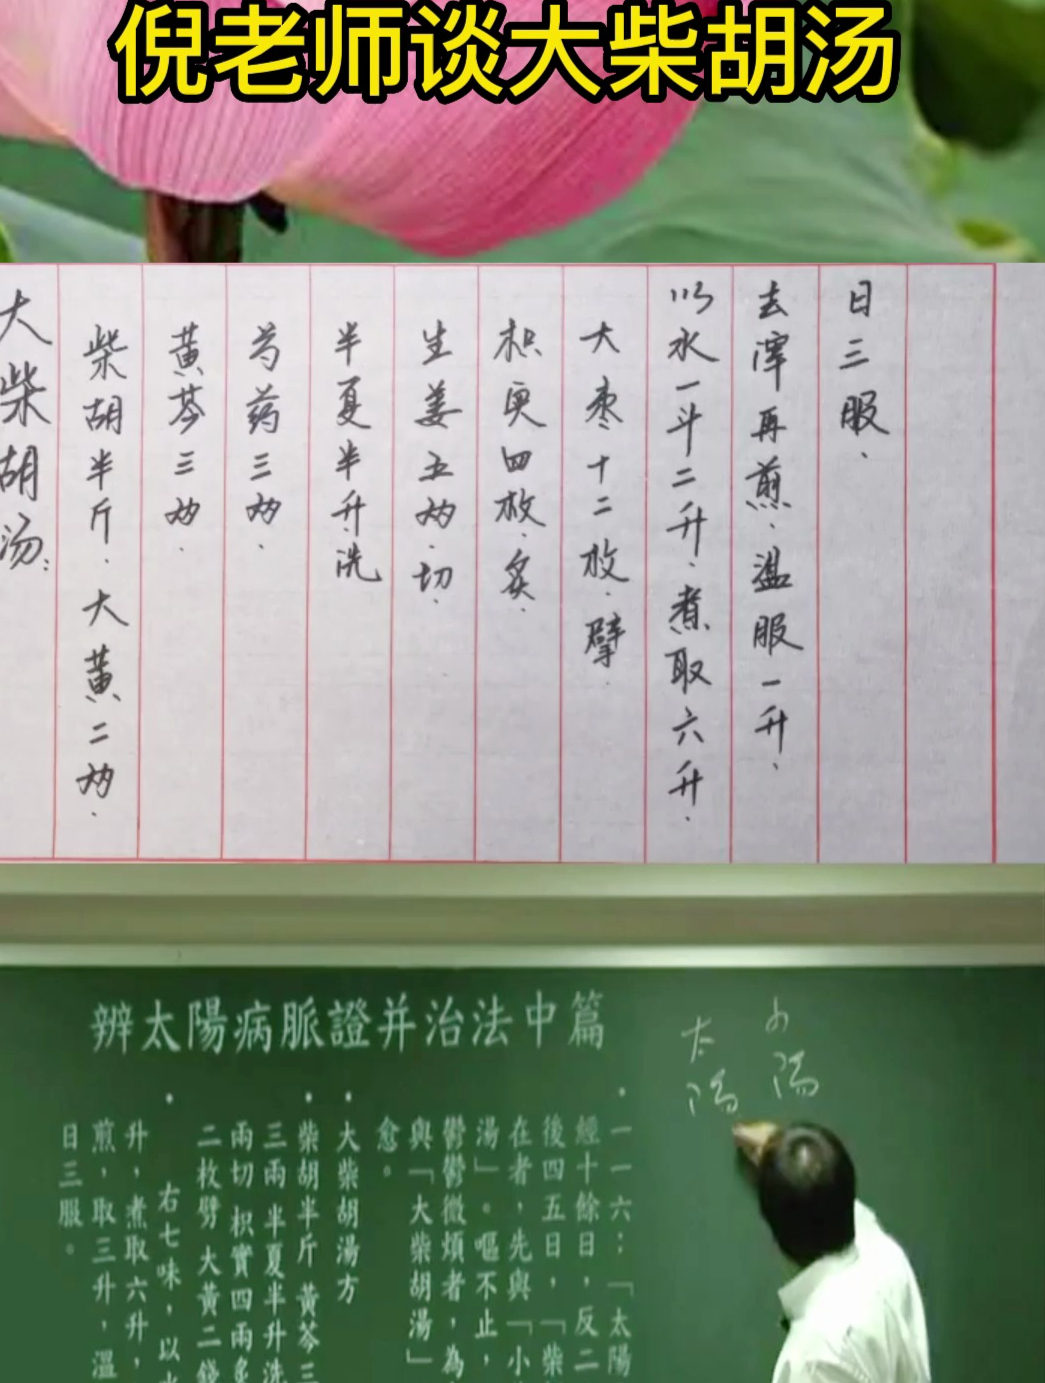 倪老师谈大柴胡汤
大柴胡汤：
柴胡半斤．大黄二两．
黄芩三两．
芍药三两．
半夏半升．洗
生姜五两．切．
枳实四枚．炙．
大枣十二枚．擘．
以水一斗二升．煮取六升．
去滓再煎．温服一升．
日三服．
太陽
少陽
辨太陽病脈證并治法中篇
・一一六：「太陽
經十餘日，反二
後四五日，「柴
在者，先與「小
湯」。嘔不止，
鬱鬱微煩者，為
與「大柴胡湯」
愈。
・大柴胡湯方
・柴胡半斤 黃芩三
三兩 半夏半升洗
兩切 枳實四兩炙
二枚劈 大黃二錢
・右七味，以水
升，煮取六升，
煎，取三升，溫
日三服。